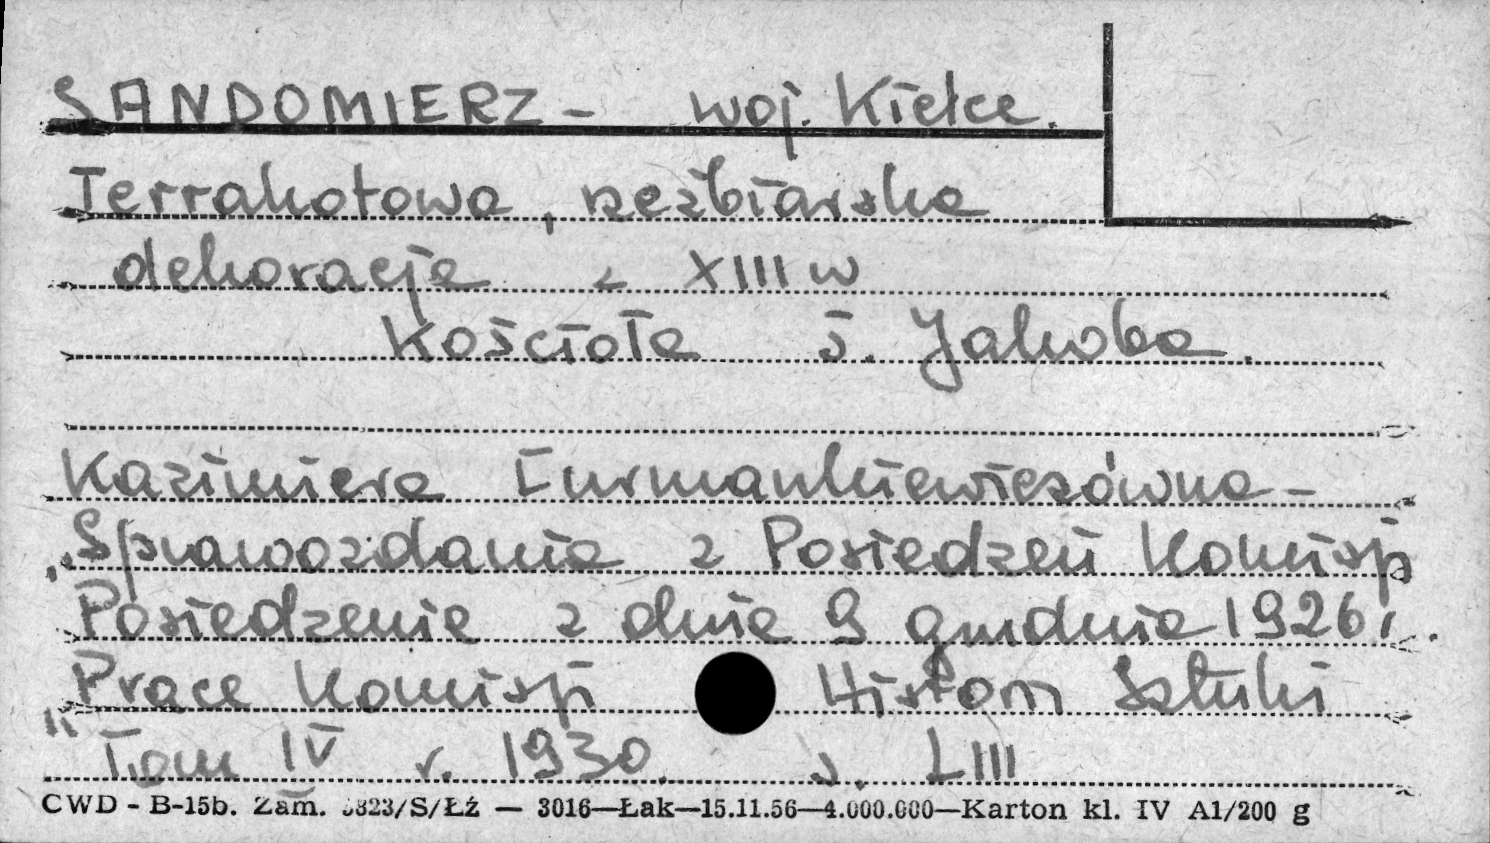 SANDOMIERZ - woj. Kielce.
Terrakotowa, rzeźbiarska
dekoracja z XIII w
Kościoła ś. Jakoba.
Kazimiera Furmankiewiczówna -
„Sprawozdania z Posiedzeń Komisji
Posiedzenie z dnia 9 grudnia 1926 r.
„Prace Komisji Historii Sztuki
" Tom IV r. 1930. s. LIII
CWD - B-15b. Zam. 3823/S/Łź — 3016—Łak—15.11.56—4.000.000—Karton kl. IV A1/200 g